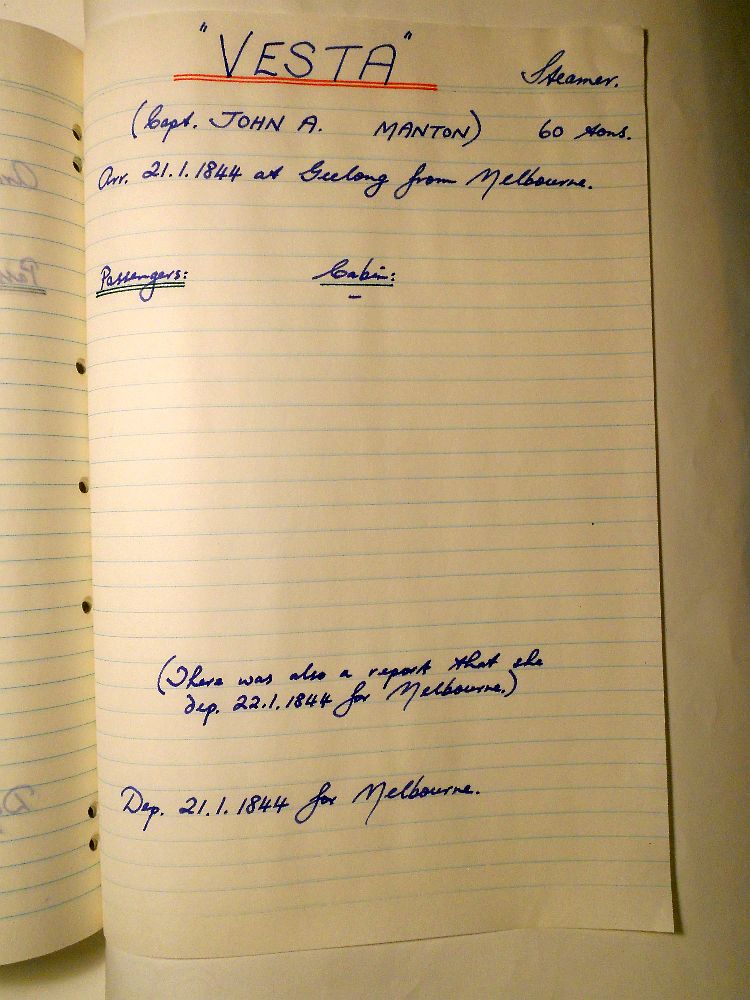 "VESTA" Steamer.
(Capt. JOHN A. MANTON) 60 tons.
Arr. 21.1.1844 at Geelong from Melbourne.
Passengers: Cabin:
–
(There was also a report that she
dep. 22.1.1844 for Melbourne.)
Dep. 21.1.1844 for Melbourne.